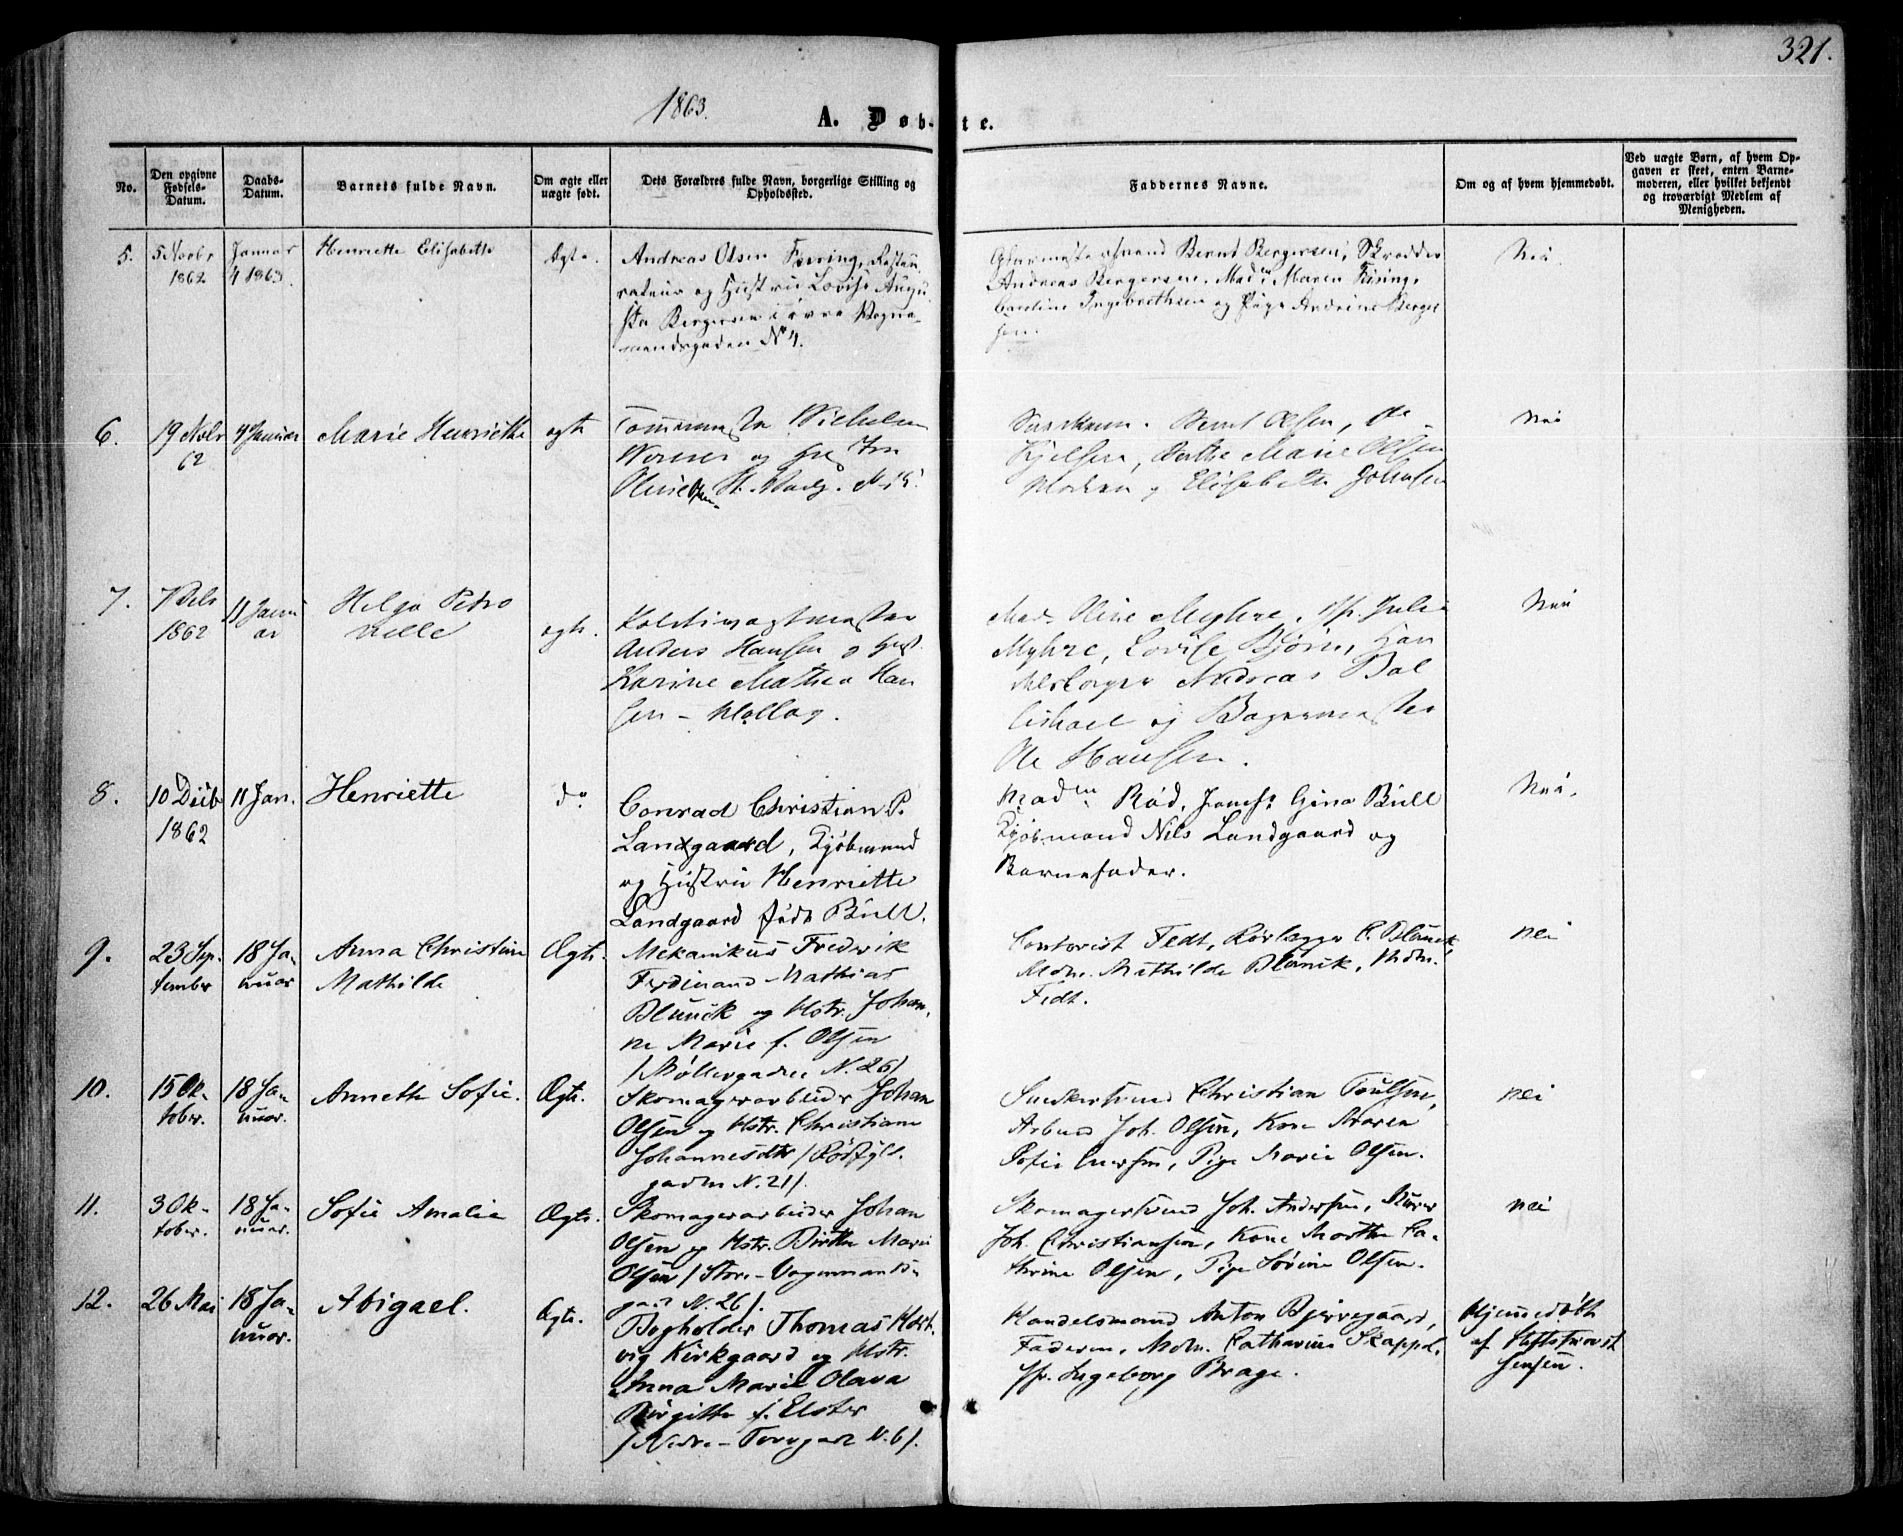 321.
1863.
A. Døb-te.
No.
Den opgivne Fødsels-Datum.
Daabs-Datum.
Barnets fulde Navn.
Om ægte eller uægte født.
Dets Forældres fulde Navn, borgerlige Stilling og Opholdssted.
Faddernes Navne.
Om og af hvem hjemmedøbt.
Ved uægte Børn, af hvem Opgaven er skeet, enten Barnemoderen, eller hvilket bekjendt og troværdigt Medlem af Menigheden.
5.
5 Novbr
1862
Januar
4 1863.
Henriette Elisabethe
Ægte.
Andreas Olsen Restau
rateur og Hustru Lovise Augu
sta Bergersen i øvre Vogn
mandsgaden No 4.
Bernt Bergersen, Skrædder
Andreas Bergersen, Madm Maren
og Pige Andrine Berger
sen.
Nei.
6.
19 Novbr
62
4 Januar
Marie Henriette
ægte
Tømmermester Wilhelm
og
Oline
Bernt Olsen,
Marie Olsen
Elisabeth Johnsen
Nei
7.
1862
11 Janu
ar
Helga Petro
nelle
ægte.
Anders Hansen og Hust.
Karine Mathea Han
sen - Møllag.
Mad. Oline Myhre, Jfr. Julie
Myhre, Lovise Bjørn, Han
Andreas
og Bagermester
Ole Hansen.
Nei
8.
10 Decb
1862
11 Jan.
Henriette
do
Conrad Christian P.
Landgaard, Kjøbmand
og Hustru Henriette
Landgaard født Büll.
Madm Rød, Jomfr Gina Büll
Kjøbmand Nils Landgaard og
Barnefader.
Nei.
9.
23 Sep-
tember
18 Ja-
nuar
Anna Christine
Mathilde
Ægte.
Mekanikus Fredrik
Ferdinand Mathias
Blunck og Hstr. Johan
ne Marie f. Olsen
/Møllergaden N. 26/
Contorist Fedt, Rørlægger C. Blunck,
Mdm. Mathilde Blunck, Mdm.
Fedt.
nei
10.
15 Ok-
tober.
18 Ja-
nuar.
Annette Sofie.
Ægte.
Skomagerarbeider Johan
Olsen og Hstr. Christiane
Johannesdtr /Rødfyld-
gaden N. 21/.
Snedkersvend Christian Poulsen,
Arbmd Joh. Olsen, Kone Maren
Sofie Iversen, Pige Marie Olsen.
nei
11.
3 Ok-
tober.
18 Ja-
nuar.
Sofie Amalie
Ægte.
Skomagerarbeider Johan
Olsen og Hstr. Birthe Marie
Olsen /Store-Vognmands-
gad N. 26/.
Skomagersvend Joh. Andersen, Murer
Joh. Christiansen, Kone Marthe Ca-
thrine Olsen, Pige Lovine Olsen.
nei
12.
26 Mai
18 Ja-
nuar.
Abigael.
Ægte.
Bogholder Thomas Hart
vig Kirkgaard og Hstr.
Anna Marie Olava
Birgitte f. Elster
/Nedre-Torvgade N. 6/.
Handelsmand Anton Bjerregaard,
Faderen, Mdm. Catharine Skappel,
Jfr. Ingeborg Brage.
Hjemmedøbt
af Stiftsprovst
Jensen.